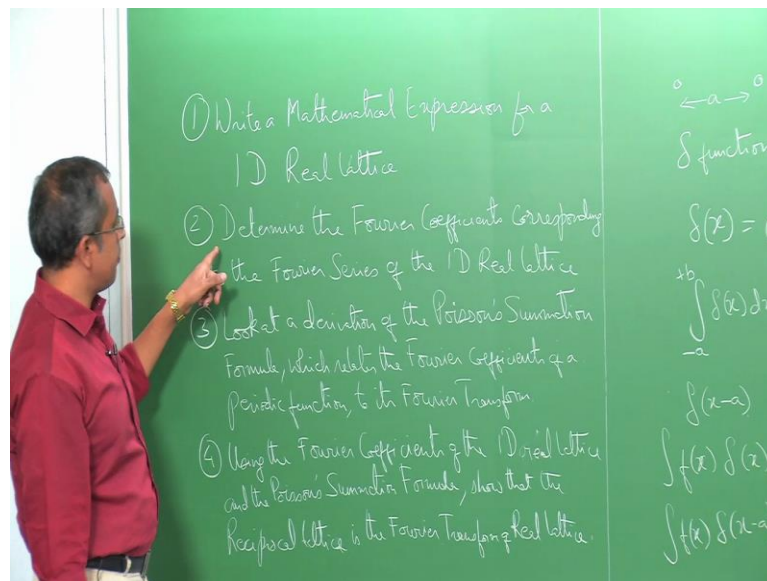 ① Write a Mathematical Expression for a
1D Real Lattice
② Determine the Fourier Coefficients Corresponding
the Fourier Series of the 1D Real Lattice
③ Look at a derivation of the Poisson's Summation
Formula, which relates the Fourier Coefficients of a
periodic function, to its Fourier Transform
④ Using the Fourier Coefficients of the 1D real lattice
and the Poisson's Summation Formula, show that the
Reciprocal lattice is the Fourier Transform of Real lattice.
o ←a→ o
δ function
δ(x) =
+b
∫ δ(x) dx
-a
δ(x-a)
∫f(x) δ(x)
∫f(x) δ(x-a